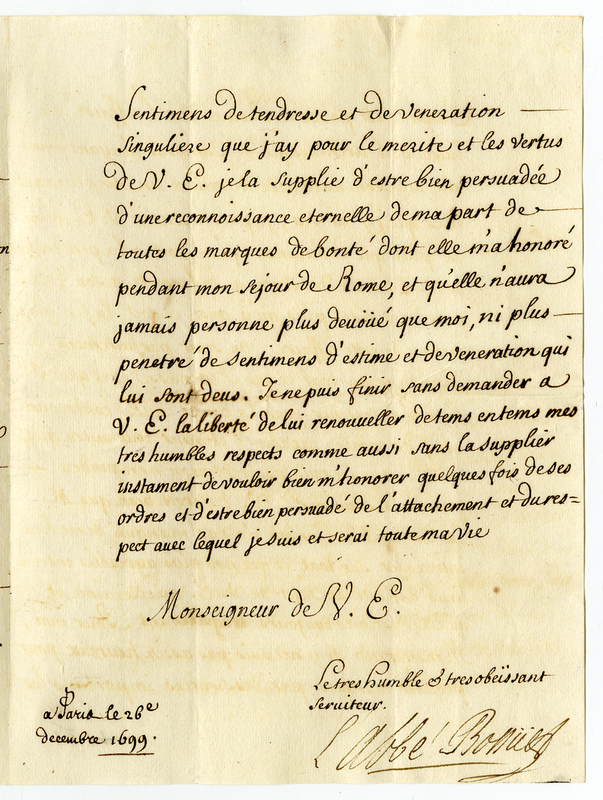 Sentimens de tendresse et de veneration
singuliere que j'ay pour le merite et les vertus
de V. E. je la supplie d'estre bien persuadée
d'une reconnoissance eternelle de ma part de
toutes les marques de bonté dont elle m'a honoré
pendant mon sejour de Rome, et qu'elle n'aura
jamais personne plus devoüé que moi, ni plus
penetré de sentimens d'estime et de veneration qui
lui sont deus. Je ne puis finir sans demander a
V. E. la liberté de lui renouveller de tems en tems mes
tres humbles respects comme aussi sans la supplier
instament de vouloir bien m'honorer quelques fois de ses
ordres et d'estre bien persuadé de l'attachement et du res=
pect avec lequel je suis et serai toute ma vie
Monseigneur de V. E.
Le tres humble & tres obeïssant
serviteur.
L'abbé
a Paris le 26e
decembre 1699.